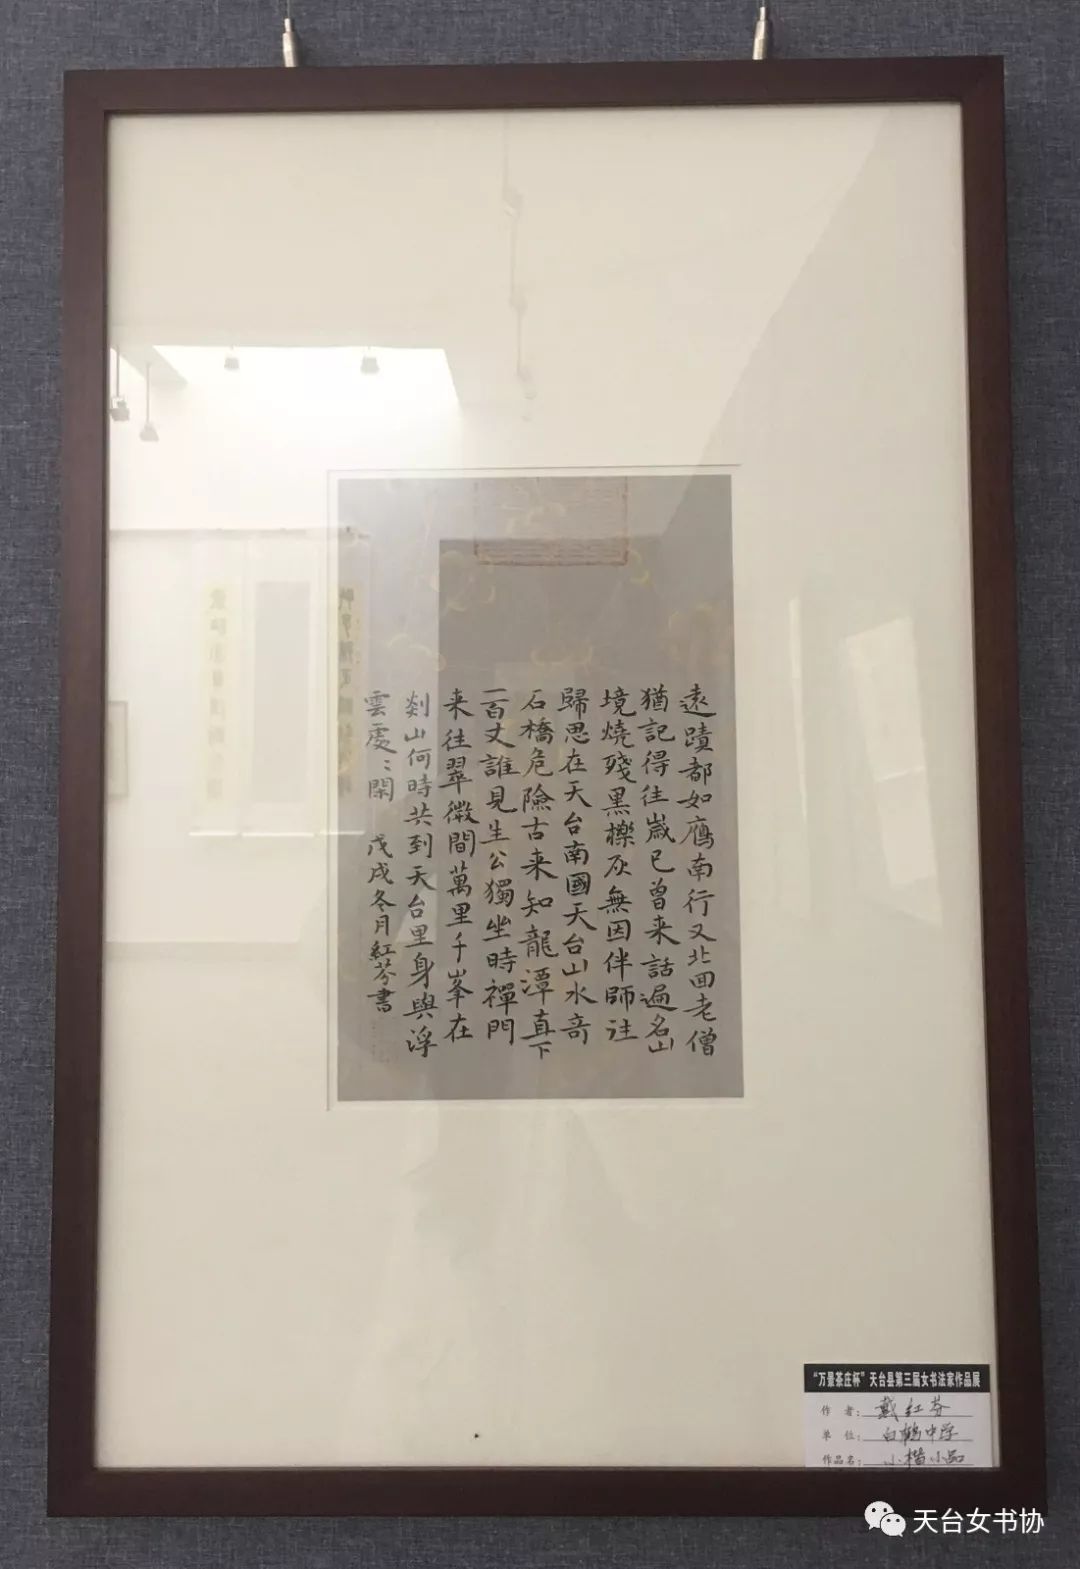 遠蹟都如鴈南行又北回老僧
猶記得往歲已曾来話遍名山
境燒殘黑櫟灰無因伴師往
歸思在天台南國天台山水奇
石橋危險古来知龍潭直下
一百丈誰見生公獨坐時禪門
来往翠微間萬里千峯在
剡山何時共到天台里身與浮
雲處〻閑 戊戌冬月紅芬書
“万景茶庄杯”天台县第三届女书法家作品展
作 者：戴红芬
单 位：白鹤中学
作品名：小楷小品
天台女书协